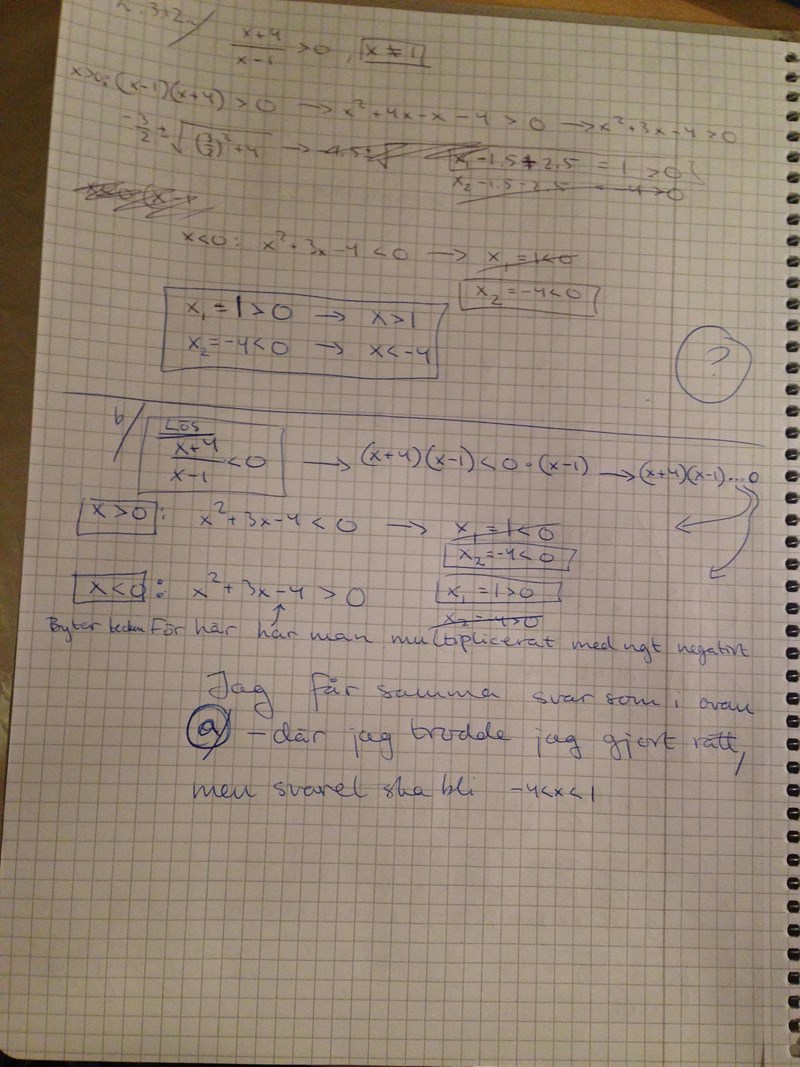 x+4/x-1 > 0, x ≠ 1
x>0: (x-1)(x+4) > 0 → x²+4x-x-4 > 0 → x²+3x-4 > 0
-3/2 ± √((3/2)²+4) →
x₁ -1.5+2.5 = 1 > 0
x₂ -1.5-2.5 = -4 > 0
x<0: x²+3x-4 < 0 → x₁ = 1<0
x₂ = -4 < 0
x₁ = 1 > 0 → x > 1
x₂ = -4 < 0 → x < -4
?
b/ Lös
x+4/x-1 < 0 → (x+4)(x-1) < 0·(x-1) → (x+4)(x-1)...0
x>0: x²+3x-4 < 0 → x₁ = 1 < 0
x₂ = -4 < 0
x<0: x²+3x-4 > 0 x₁ = 1 > 0
x₂ = -4 > 0
Byter tecken För här har man multiplicerat med ngt negativt
Jag får samma svar som i ovan
a) - där jag trodde jag gjort rätt,
men svaret ska bli -4<x<1